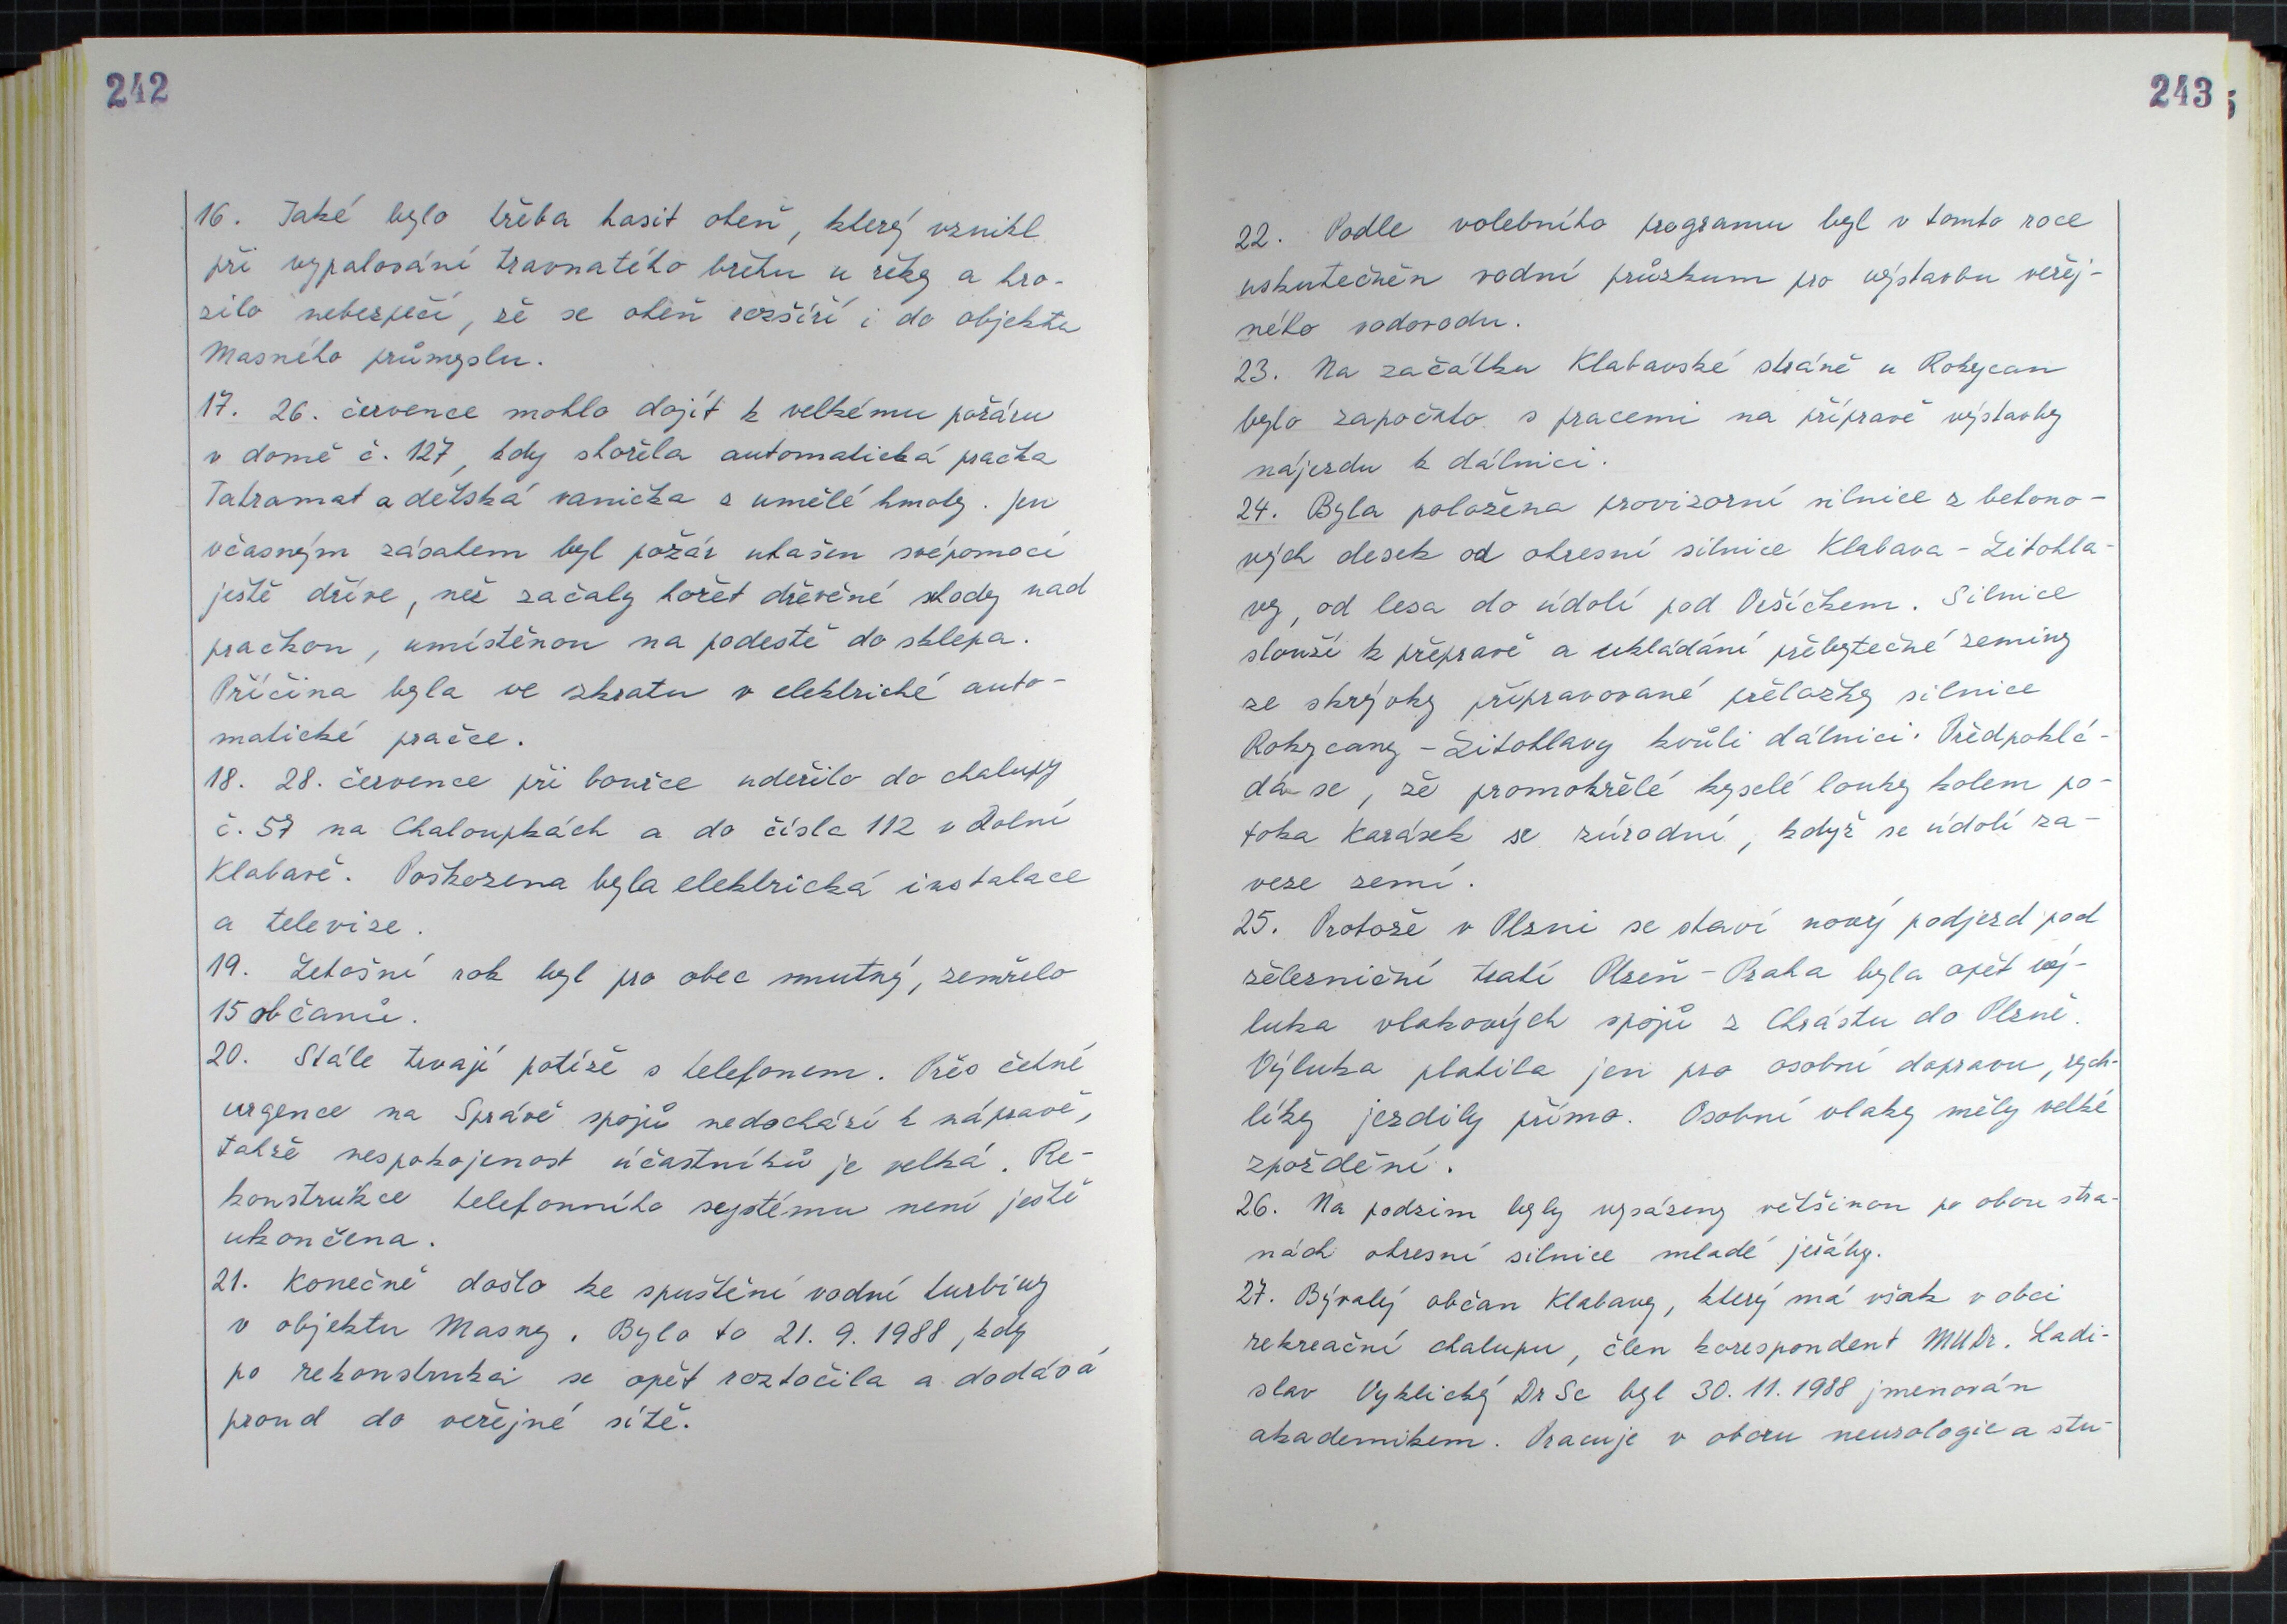 242
16. Také bylo třeba hasit oheň, který vznikl
při vypalování travnatého břehu u řeky a hro-
zilo nebezpečí, že se oheň rozšíří i do objektu
Masného průmyslu.
17. 26. července mohlo dojít k velkému požáru
v domě č. 127, kdy shořela automatická pračka
Tatramat a dětská vanička z umělé hmoty. Jen
včasným zásahem byl požár uhašen svépomocí
ještě dříve, než začaly hořet dřevěné schody nad
pračkou, umístěnou na podestě do sklepa.
Příčina byla ve zkratu v elektrické auto-
matické pračce.
18. 28. července při bouřce udeřilo do chalupy
č. 57 na Chaloupkách a do čísla 112 v Dolní
Klabavě. Poškozena byla elektrická instalace
a televize.
19. Letošní rok byl pro obec smutný, zemřelo
15 občanů.
20. Stále trvají potíže s telefonem. Přes četné
urgence na Správě spojů nedochází k nápravě,
takže nespokojenost účastníků je velká. Re-
konstrukce telefonního systému není ještě
ukončena.
21. Konečně došlo ke spuštění vodní turbíny
v objektu Masny. Bylo to 21. 9. 1988, kdy
po rekonstrukci se opět roztočila a dodává
proud do veřejné sítě.
243
22. Podle volebního programu byl v tomto roce
uskutečněn vodní průzkum pro výstavbu veřej-
ného vodovodu.
23. Na začátku Klabavské stráně u Rokycan
bylo započato s pracemi na přípravě výstavby
nájezdu k dálnici.
24. Byla položena provizorní silnice z betono-
vých desek od okresní silnice Klabava - Litohla-
vy, od lesa do údolí pod Vršíčkem. Silnice
slouží k přepravě a ukládání přebytečné zeminy
ze skrývky připravované přeložky silnice
Rokycany - Litohlavy kvůli dálnici. Předpoklá-
dá se, že promokřelé kyselé louky kolem po-
toka Karásek se zúrodní, když se údolí za-
veze zemí.
25. Protože v Plzni se staví nový podjezd pod
železniční tratí Plzeň - Praha byla opět vý-
luka vlakových spojů z Chrástu do Plzně.
Výluka platila jen pro osobní dopravu, rych-
líky jezdily přímo. Osobní vlaky měly velké
zpoždění.
26. Na podzim byly vysázeny většinou po obou stra-
nách okresní silnice mladé jeřáby.
27. Bývalý občan Klabavy, který má však v obci
rekreační chalupu, člen korespondent MUDr. Ladi-
slav Vyklický DrSc byl 30. 11. 1988 jmenován
akademikem. Pracuje v oboru neurologie a stu-